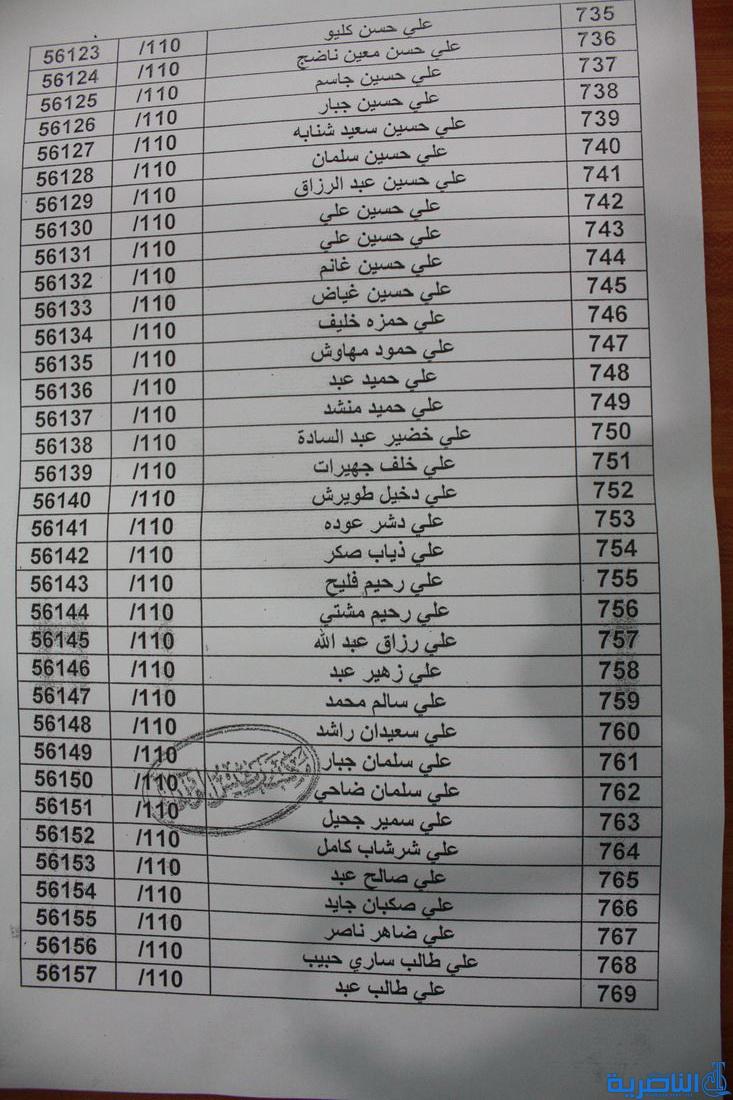 735 علي حسن كليو 110/ 56123
736 علي حسن معين ناضج 110/ 56124
737 علي حسين جاسم 110/ 56125
738 علي حسين جبار 110/ 56126
739 علي حسين سعيد شنابه 110/ 56127
740 علي حسين سلمان 110/ 56128
741 علي حسين عبد الرزاق 110/ 56129
742 علي حسين علي 110/ 56130
743 علي حسين علي 110/ 56131
744 علي حسين غانم 110/ 56132
745 علي حسين غياض 110/ 56133
746 علي حمزه خليف 110/ 56134
747 علي حمود مهاوش 110/ 56135
748 علي حميد عبد 110/ 56136
749 علي حميد منشد 110/ 56137
750 علي خضير عبد السادة 110/ 56138
751 علي خلف جهيرات 110/ 56139
752 علي دخيل طويرش 110/ 56140
753 علي دشر عوده 110/ 56141
754 علي ذياب صكر 110/ 56142
755 علي رحيم فليح 110/ 56143
756 علي رحيم مشتي 110/ 56144
757 علي رزاق عبد الله 110/ 56145
758 علي زهير عبد 110/ 56146
759 علي سالم محمد 110/ 56147
760 علي سعيدان راشد 110/ 56148
761 علي سلمان جبار 110/ 56149
762 علي سلمان ضاحي 110/ 56150
763 علي سمير جحيل 110/ 56151
764 علي شرشاب كامل 110/ 56152
765 علي صالح عبد 110/ 56153
766 علي صكبان جايد 110/ 56154
767 علي ضاهر ناصر 110/ 56155
768 علي طالب ساري حبيب 110/ 56156
769 علي طالب عبد 110/ 56157
الناصرية